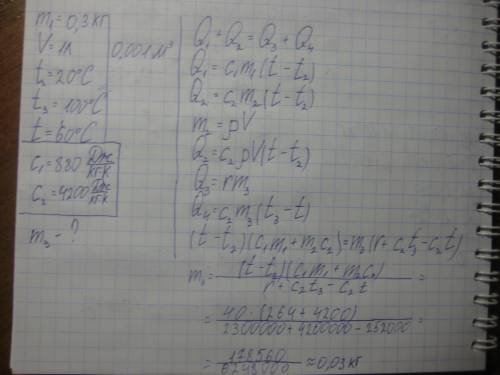 m₁=0,3 кг
V=1л 0,001 м³
t₂=20°C
t₃=100°C
t=60°C
c₁=880 Дж/кг·К
c₂=4200 Дж/кг·К
m₃ - ?
Q₁+Q₂=Q₃+Q₄
Q₁=c₁m₁(t-t₂)
Q₂=c₂m₂(t-t₂)
m₂=ρV
Q₂=c₂ρV(t-t₂)
Q₃=rm₃
Q₄=c₂m₃(t₃-t)
(t-t₂)(c₁m₁+m₂c₂)=m₃(r+c₂t₃-c₂t)
m₃=(t-t₂)(c₁m₁+m₂c₂)/r+c₂t₃-c₂t=
=40·(264+4200)/2300000+4200000-252000=
=178560/6248000≈0,03кг